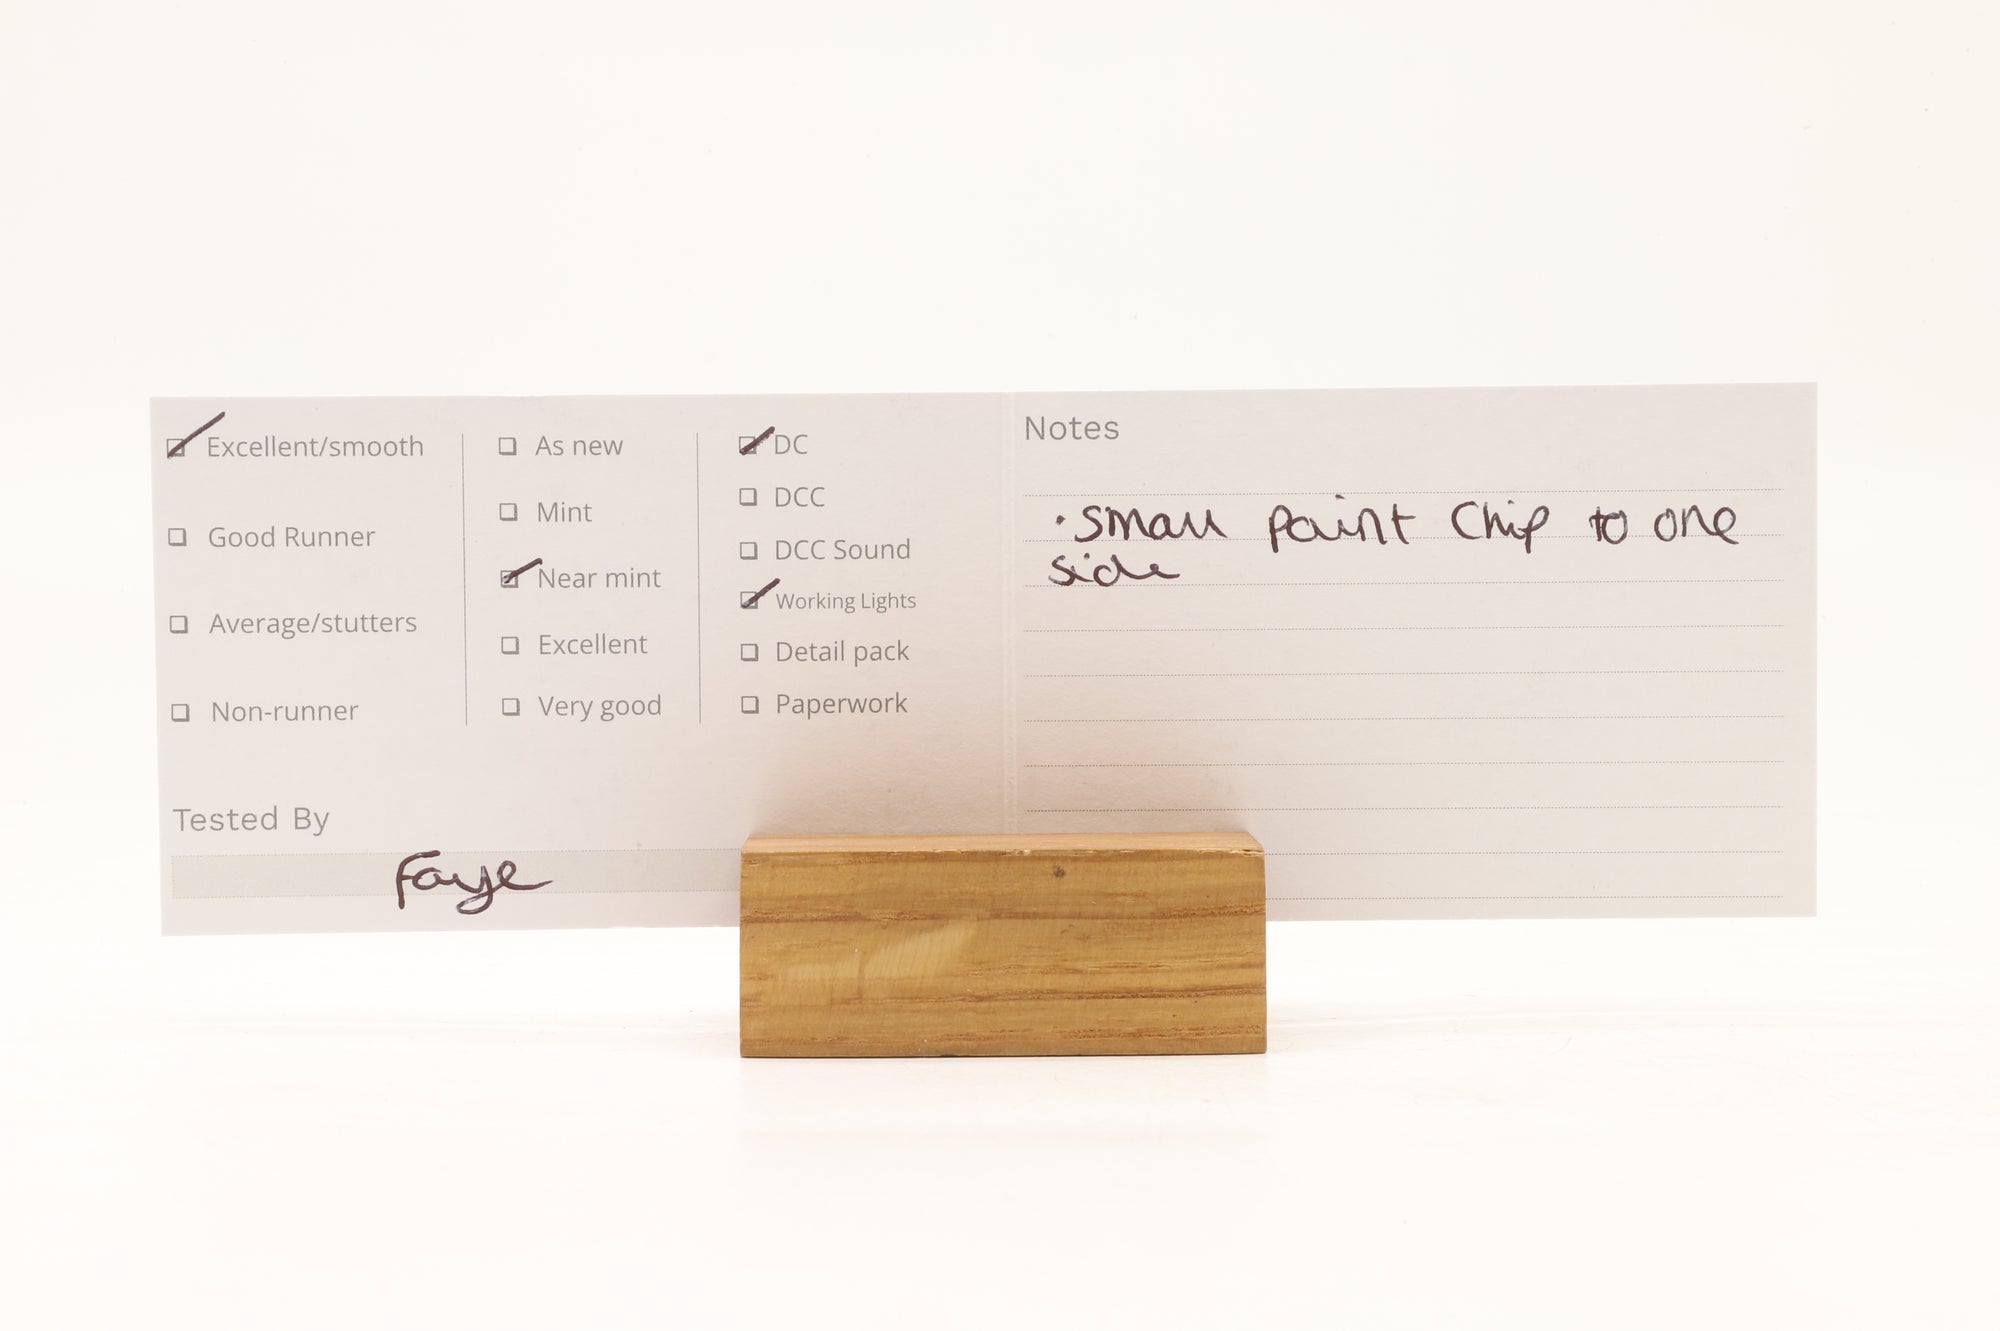 Excellent/smooth
Good Runner
Average/stutters
Non-runner
As new
Mint
Near mint
Excellent
Very good
DC
DCC
DCC Sound
Working Lights
Detail pack
Paperwork
Tested By
Faye
Notes
·Small paint Chip to one
side